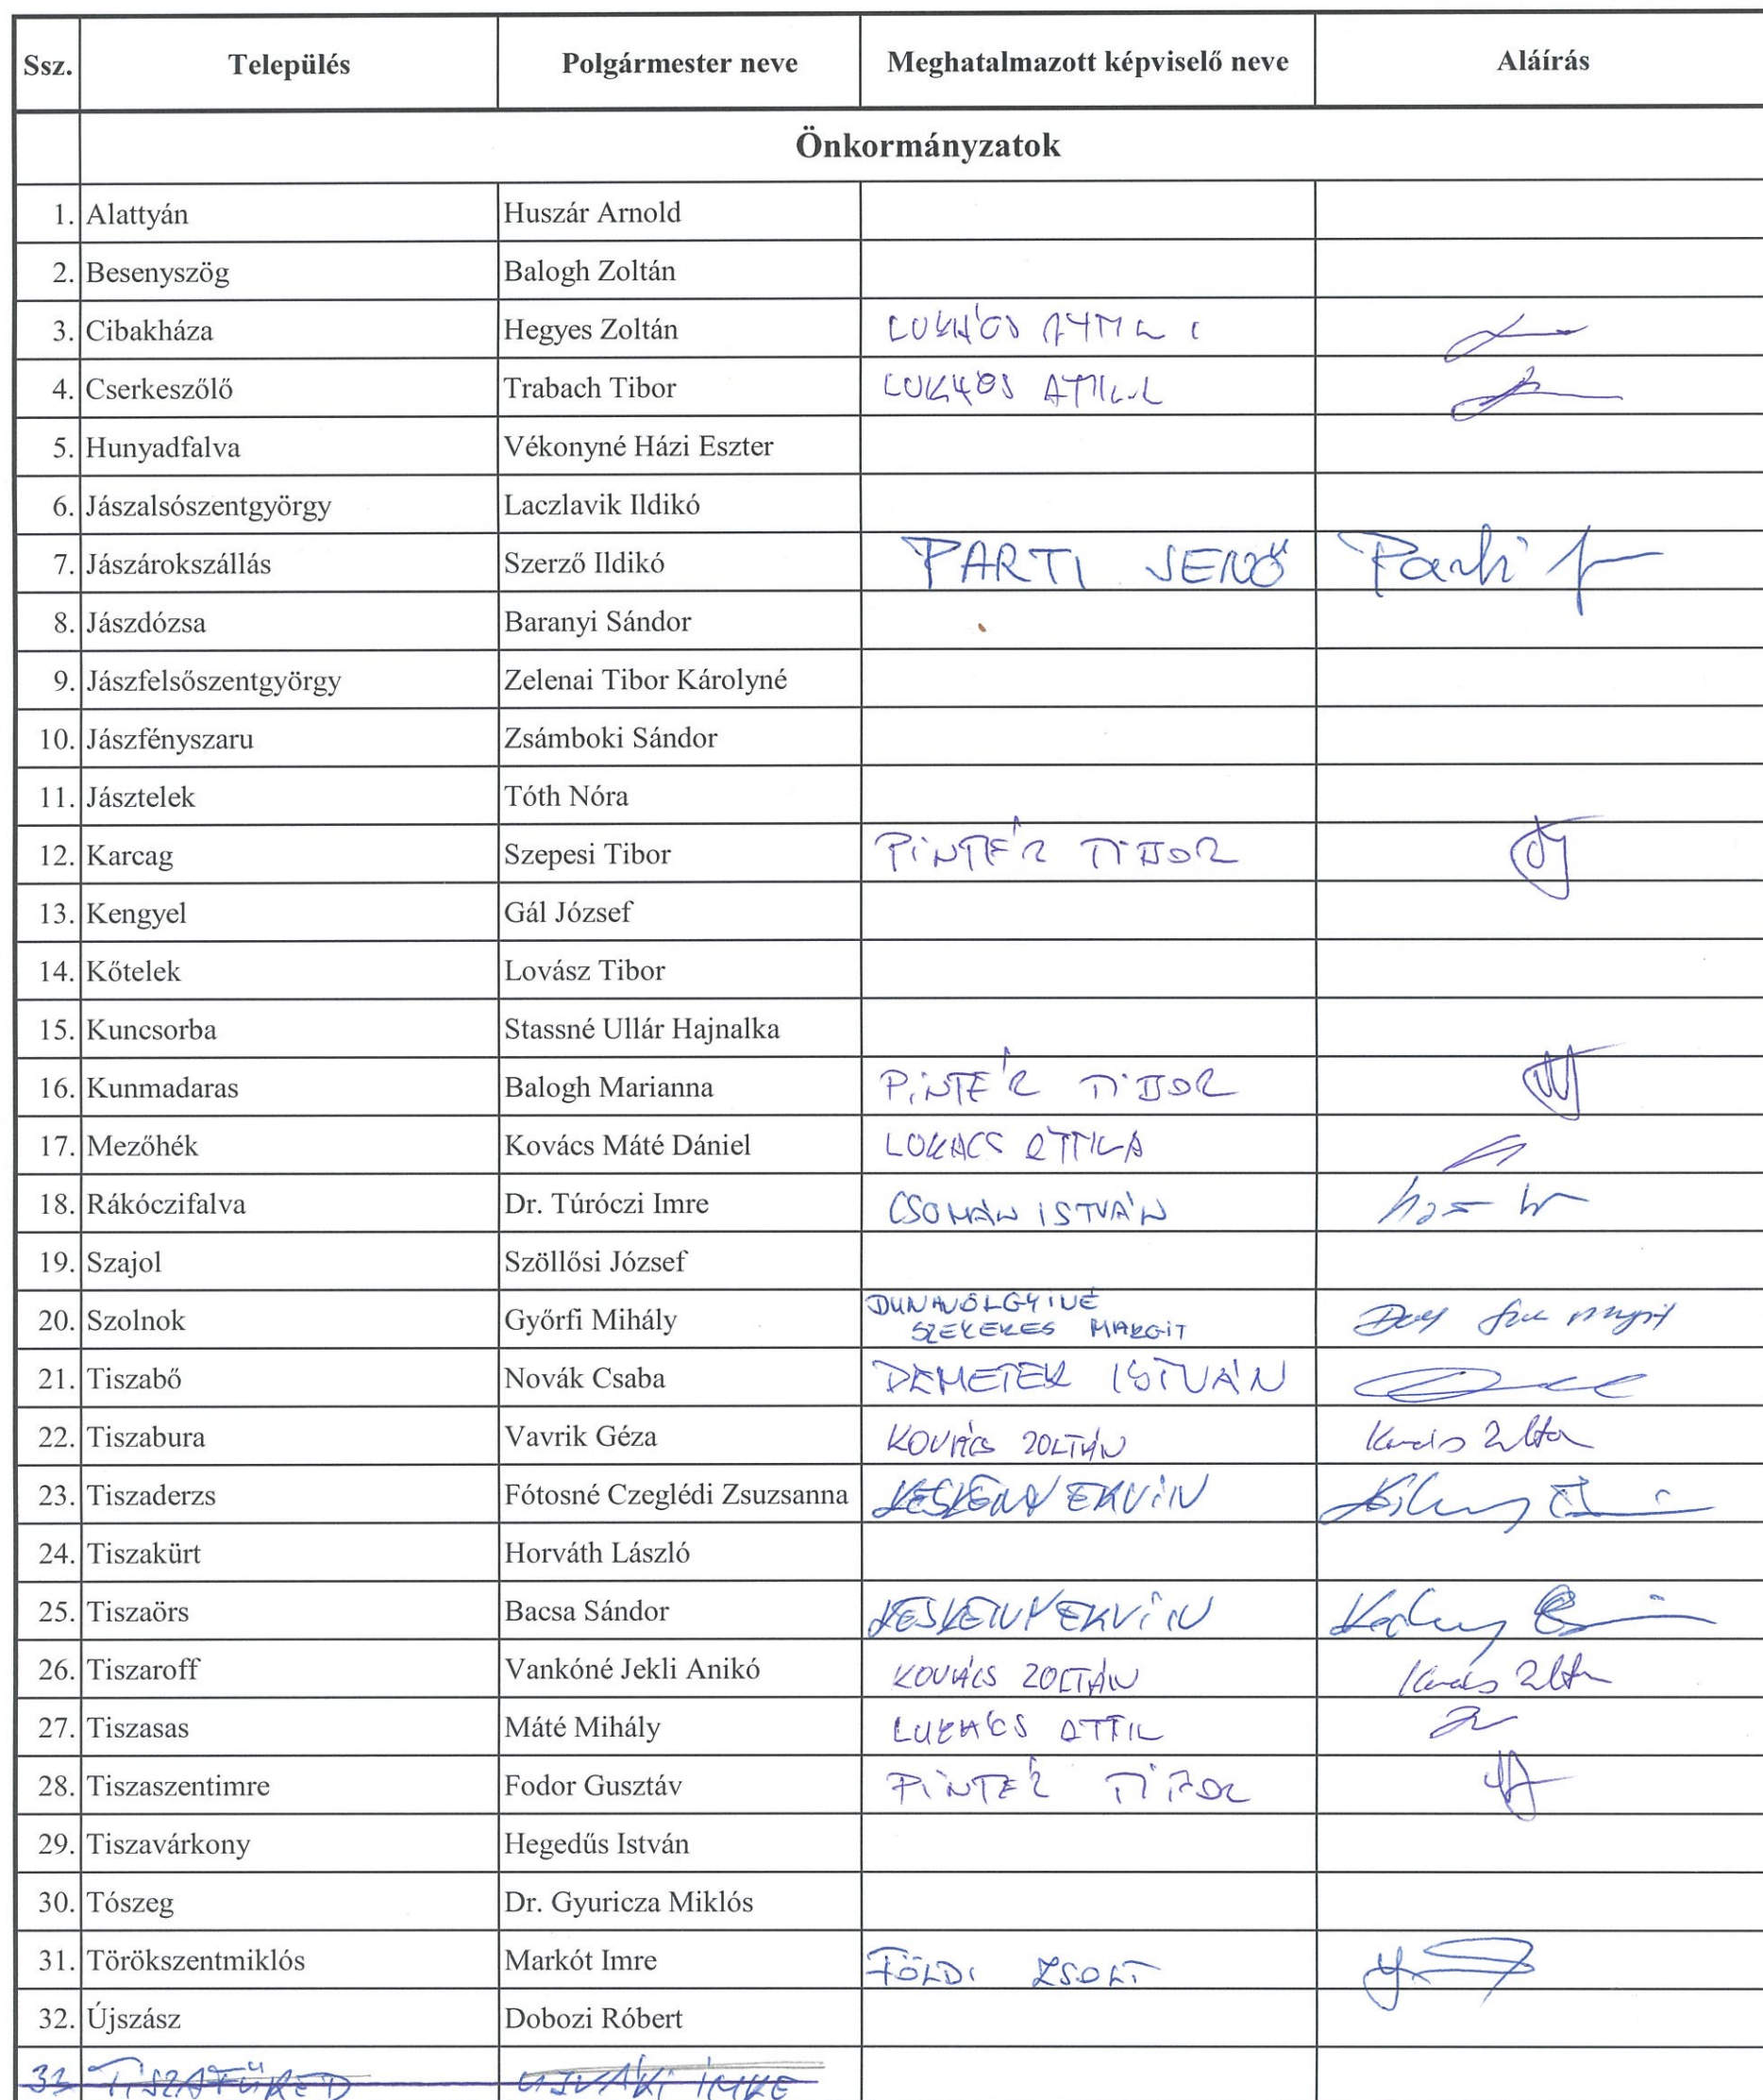 Ssz. Település Polgármester neve Meghatalmazott képviselő neve Aláírás
Önkormányzatok
1. Alattyán Huszár Arnold
2. Besenyszög Balogh Zoltán
3. Cibakháza Hegyes Zoltán LUKÁCS
4. Cserkeszőlő Trabach Tibor LUKÁCS
5. Hunyadfalva Vékonyné Házi Eszter
6. Jászalsószentgyörgy Laczlavik Ildikó
7. Jászárokszállás Szerző Ildikó PARTI JENŐ Parti J
8. Jászdózsa Baranyi Sándor
9. Jászfelsőszentgyörgy Zelenai Tibor Károlyné
10. Jászfényszaru Zsámboki Sándor
11. Jásztelek Tóth Nóra
12. Karcag Szepesi Tibor PINTÉR TIBOR
13. Kengyel Gál József
14. Kőtelek Lovász Tibor
15. Kuncsorba Stassné Ullár Hajnalka
16. Kunmadaras Balogh Marianna PINTÉR TIBOR
17. Mezőhék Kovács Máté Dániel LUKACS ATTILA
18. Rákóczifalva Dr. Túróczi Imre ISTVÁN
19. Szajol Szöllősi József
20. Szolnok Győrfi Mihály DUNAVÖLGYINÉ
SZEKERES MARGIT
21. Tiszabő Novák Csaba DEMETER ISTVÁN
22. Tiszabura Vavrik Géza KOVÁCS ZOLTÁN Kovács Zoltán
23. Tiszaderzs Fótosné Czeglédi Zsuzsanna KESKENY ERVIN
24. Tiszakürt Horváth László
25. Tiszaörs Bacsa Sándor KESKENY ERVIN
26. Tiszaroff Vankóné Jekli Anikó KOVÁCS ZOLTÁN Kovács Zoltán
27. Tiszasas Máté Mihály LUKÁCS ATTIL
28. Tiszaszentimre Fodor Gusztáv PINTÉR TIBOR
29. Tiszavárkony Hegedűs István
30. Tószeg Dr. Gyuricza Miklós
31. Törökszentmiklós Markót Imre FÖLDI ZSOLT
32. Újszász Dobozi Róbert
33 TISZAFÜRED UJVÁRI IMRE